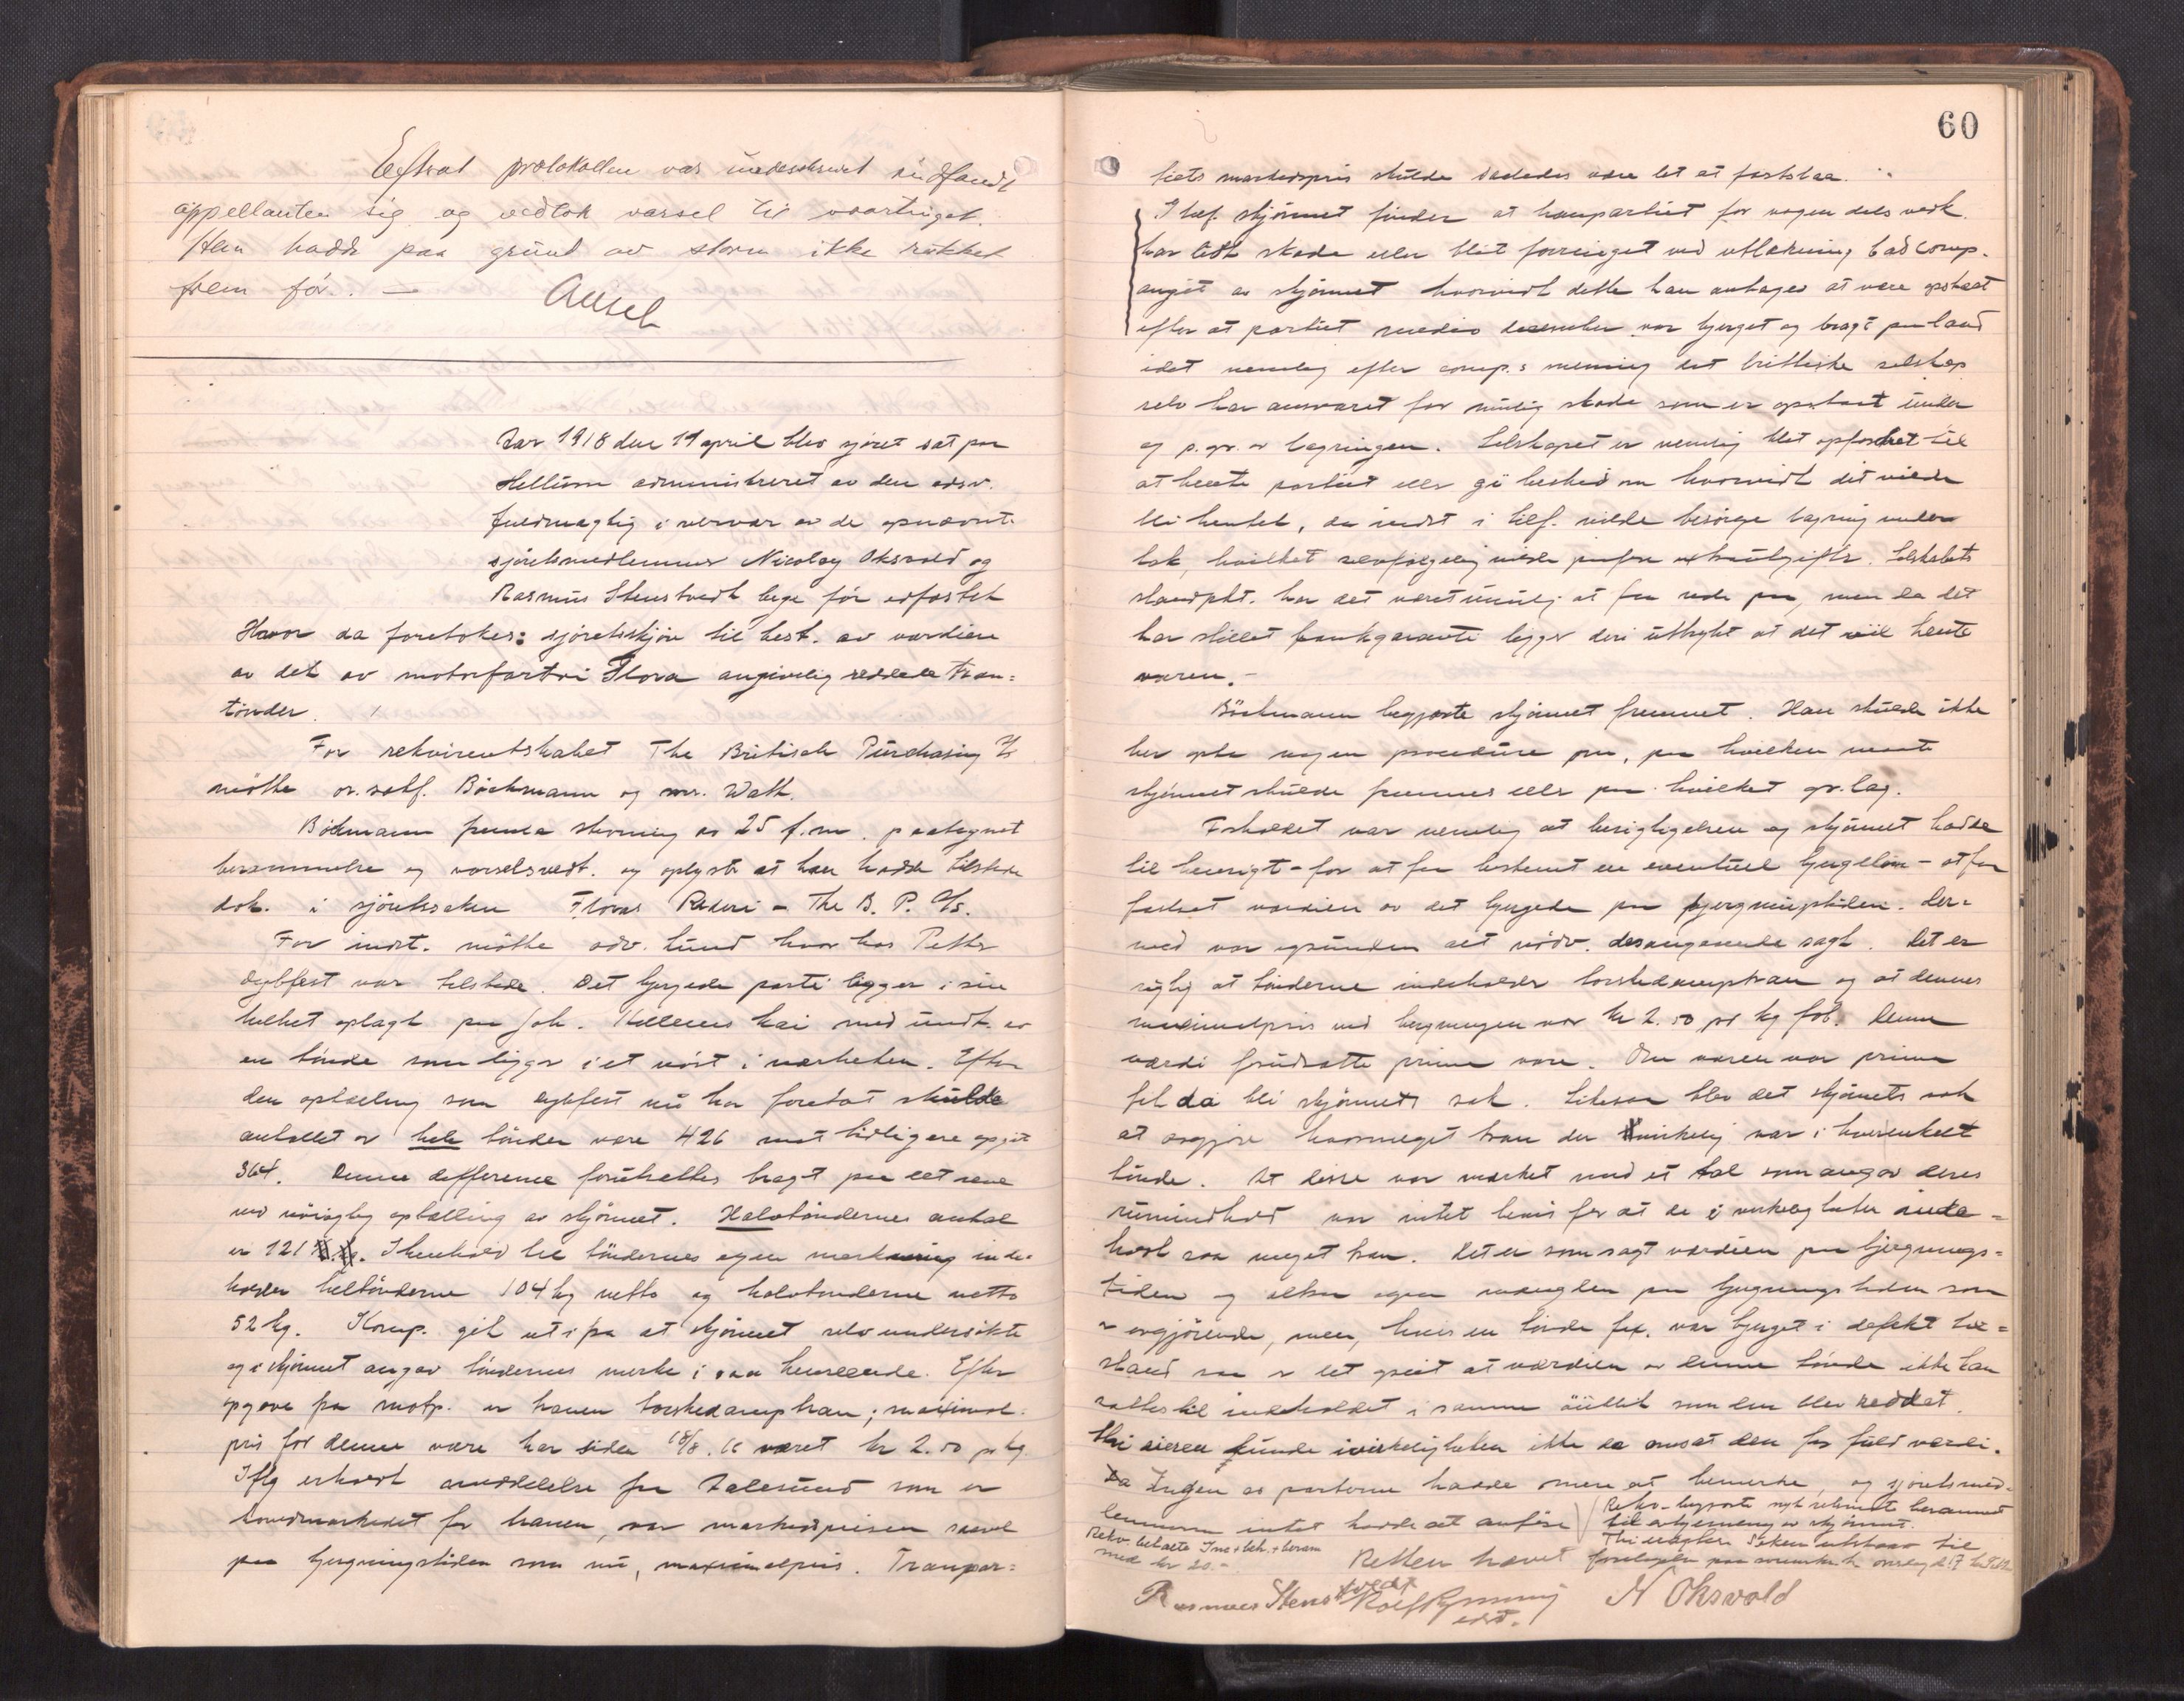 Efterat protokollen var underskrevet indfandt
appellanten sig og vedtok varsel til vaartinget.
Han hadde paa grund av storm ikke rukket
frem før. —
Aar 1918 den 11 april blev sjøret sat paa
Hellesøen administreret av den edsv.
fuldmægtig i nærvær av de opnævnte
sjøretsmedlemmer Nicolay Oksvold og
Rasmus Stenstvedt bege før edfæstet
Hvor da foretokes: sjøretsskjøn til best. av værdien
av det av motorfartøi Flora angivelig reddede tran=
tønder.
For rekvirentskabet The British Purchasing A/s
møtte or. sakf. Böckmann og mr. Watt.
Böckmann fremla stevning av 25 f.m. paategnet
berammelse og varselsvedt. og oplyste at han hadde tilstede
dok. i sjøretssaken Floras Rederi – The B. P. A/s.
For indst. møtte adv. Lund hvorhos Petter
Dybfest var tilstede. Det bjergede parti ligger i sin
helhet oplagt paa Joh. kai med undt. av
en tønde som ligger i et nøst i nærheten. Efter
den optælling som Dybfest nu har foretat skulde
antallet av hele tønder være 426 mot tidligere opgit
364. Denne difference forutsættes bragt paa det rene
ved nøiagtig optælling av skjønnet. Halvtøndernes antal
er 121. I henhold til tøndernes egen merkning inde-
holder heltønderne 104 kg netto og halvtønderne netto
52 kg. Komp. gik ut ifra at skjønnet selv undersøkte
og i skjønnet angav tøndernes merke i saa henseende. Efter
opgave fra motp. er tranen torskedamptran; maximal-
pris for denne vare har siden 18/8.16 været kr 2.50 pr kg.
Iflg erholdt meddelelse fra Aalesund som er
hovedmarkedet for tranen, var markedsprisen saavel
paa bjergningstiden som nu, maximalpris. Tranpar=
60
tiets markedspris skulde saaledes være let at fastslaa.
I tilf. skjønnet finder at tranpartiet for nogen dels vedk.
har lidt skade eller blit forringet ved utlækning bad comp.
angit av skjønnet hvorvidt dette kan antages at være opstaat
efter at partiet medio december var bjerget og bragt paa land
idet nemlig efter comp.s mening det brittiske selskap
selv har ansvaret for mulig skade som er opstaat under
og p.gr. av lagringen. Selskapet er nemlig blit opfordret til
at hente partiet eller gi besked om hvorvidt det vilde
bli hentet, da indst i tilf. vilde besørge lagring under
tak, hvilket selvfølgelig vilde paaføre extrautgifter. Selskabets
standpkt. har det været umulig at faa rede paa, men da det
har stillet bankgaranti ligger deri uttrykt at det vil hente
varen.–
Böckmann begjærte skjønnet fremmet. Han skulde ikke
her opta nogen procedure om, paa hvilken maate
skjønnet skulde fremmes eller paa hvilket gr.lag.
Forholdet var nemlig at besigtigelsen og skjønnet hadde
til hensigt – for at faa bestemt en eventuel bjergeløn – at faa
fastsat værdien av det bjergede paa bjergningstiden. Der=
med var ogsaa det nødv. desangaaende sagt. Det er
rigtig at tønderne indeholder torskedamptran og at dennes
maximalpris ved bergningen var kr 2.50 pr kg fob. Denne
værdi forutsatte prima vare. Om varen var prima
fik da bli skjønnets sak. Likesaa blev det skjønnets sak
at avgjøre hvormeget tran der virkelig var i hver enkelt
tønde. At disse var merket med et tal som angav deres
rumindhold var intet bevis for at de i virkeligheten inde=
holdt saa meget tran. Det er som sagt værdien paa bjergnings=
tiden og altsaa ogsaa mængden paa bjergningstiden som
er avgjørende, men, hvis en tønde fex. var bjerget i defekt til=
stand saa er det greit at værdien av denne tønde ikke kan
sættes til indholdet i samme øieblik som den blev reddet.
Thi eieren kunde i virkeligheten ikke da omsat den for fuld værdi.
Da Ingen av parterne hadde mere at bemerke, og sjøretsmed-
lemmerne intet hadde at anføre
Rekv. begjærte nyt retsmøte berammet
til avhjemling av skjønnet.
Rekv. betalte Ins + beh. + beram
med kr 20.–
Retten hævet
Rasmus Stenstvedt
N Oksvold